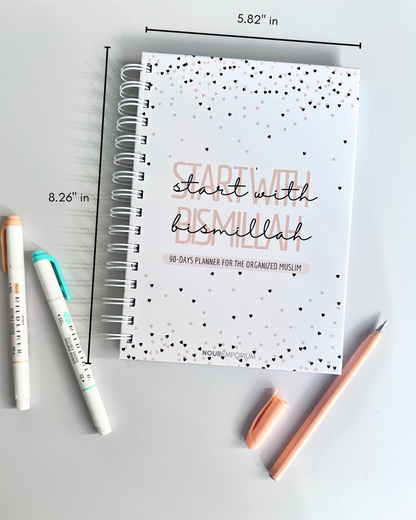 5.82" in
8.26" in
START WITH
start with
BISMILLAH
bismillah
90-DAYS PLANNER FOR THE ORGANIZED MUSLIM
NOUREMPORIUM
MILDLINER
MILDLINER